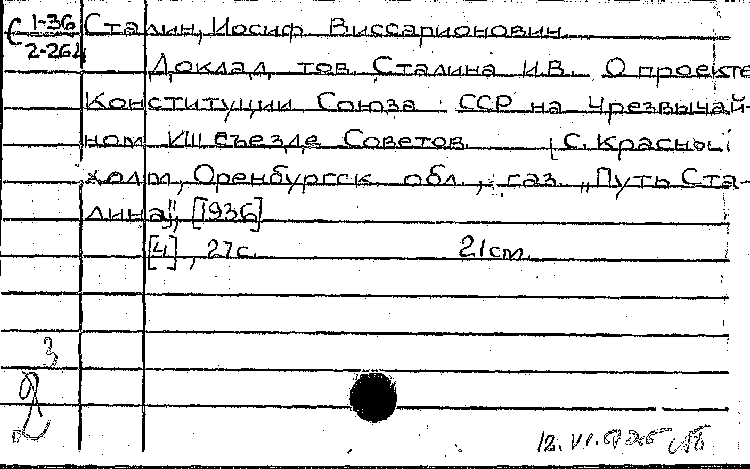 С 1-36
2-264
Сталин, Иосиф Виссарионович.
Доклад тов. Сталина И.В. О проекте
Конституции Союза ССР на Чрезвычай-
ном VIII съезде Советов. [С. Красно
холм, Оренбургск. обл., газ. „Путь Ста-
лина”, [1936]
[4], 27с. 21см.
3
2
12.VI.